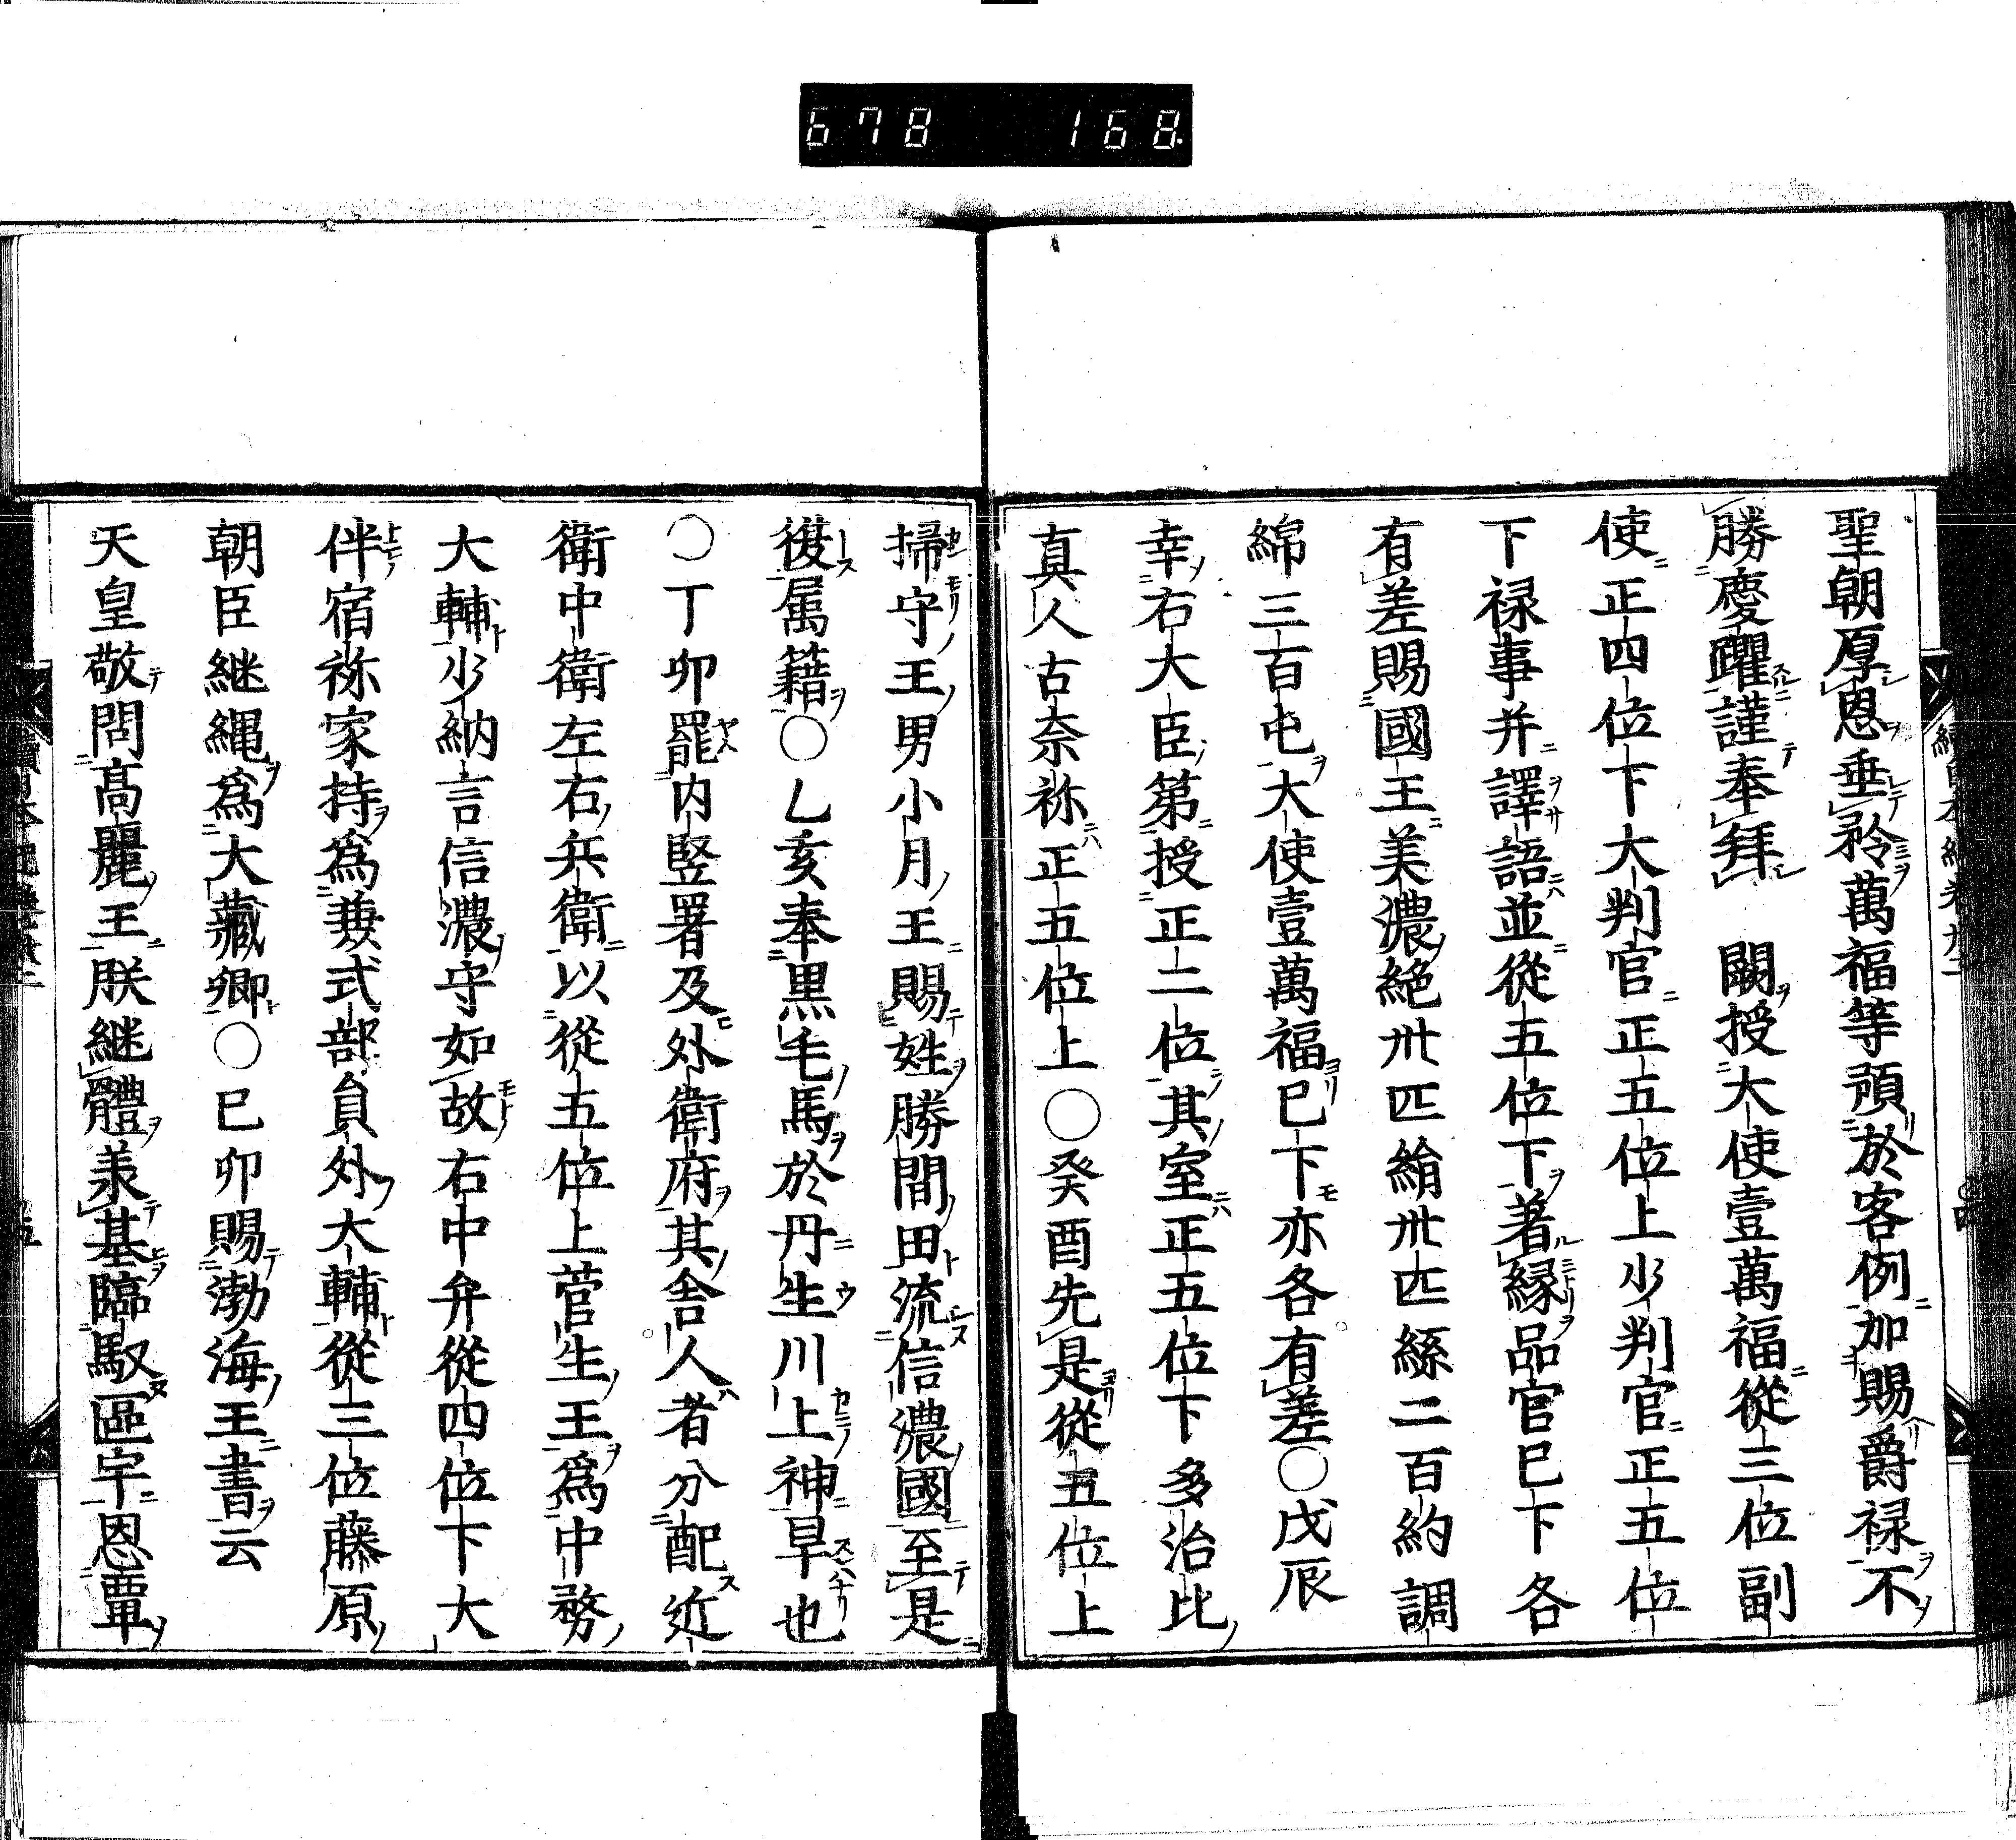 678 168
聖朝厚恩垂矜萬福等預於客例加賜爵禄不
勝慶躍謹奉拜 闕授大使壹萬福從三位副
使正四位下大判官正五位上少判官正五位
下禄事并譯語並從五位下著縁品官已下各
有差賜國王美濃絁卅匹絹卅匹絲二百約調
綿三百屯大使壹萬福已下亦各有差〇戊辰
幸右大臣第授正二位其室正五位下多治比
真人古奈祢正五位上〇癸酉先是從五位上
掃守王男小月王賜姓勝間田流信濃國至是
復属籍〇乙亥奉黒毛馬於丹生川上神旱也
〇丁卯罷内竪署及外衛府其舎人者分配近
衛中衛左右兵衛以從五位上菅生王爲中務
大輔少納言信濃守如故右中弁從四位下大
伴宿祢家持爲兼式部員外大輔從三位藤原
朝臣継縄爲大藏卿〇已卯賜渤海王書云
天皇敬問髙麗王朕継體兼基臨馭區宇恩覃